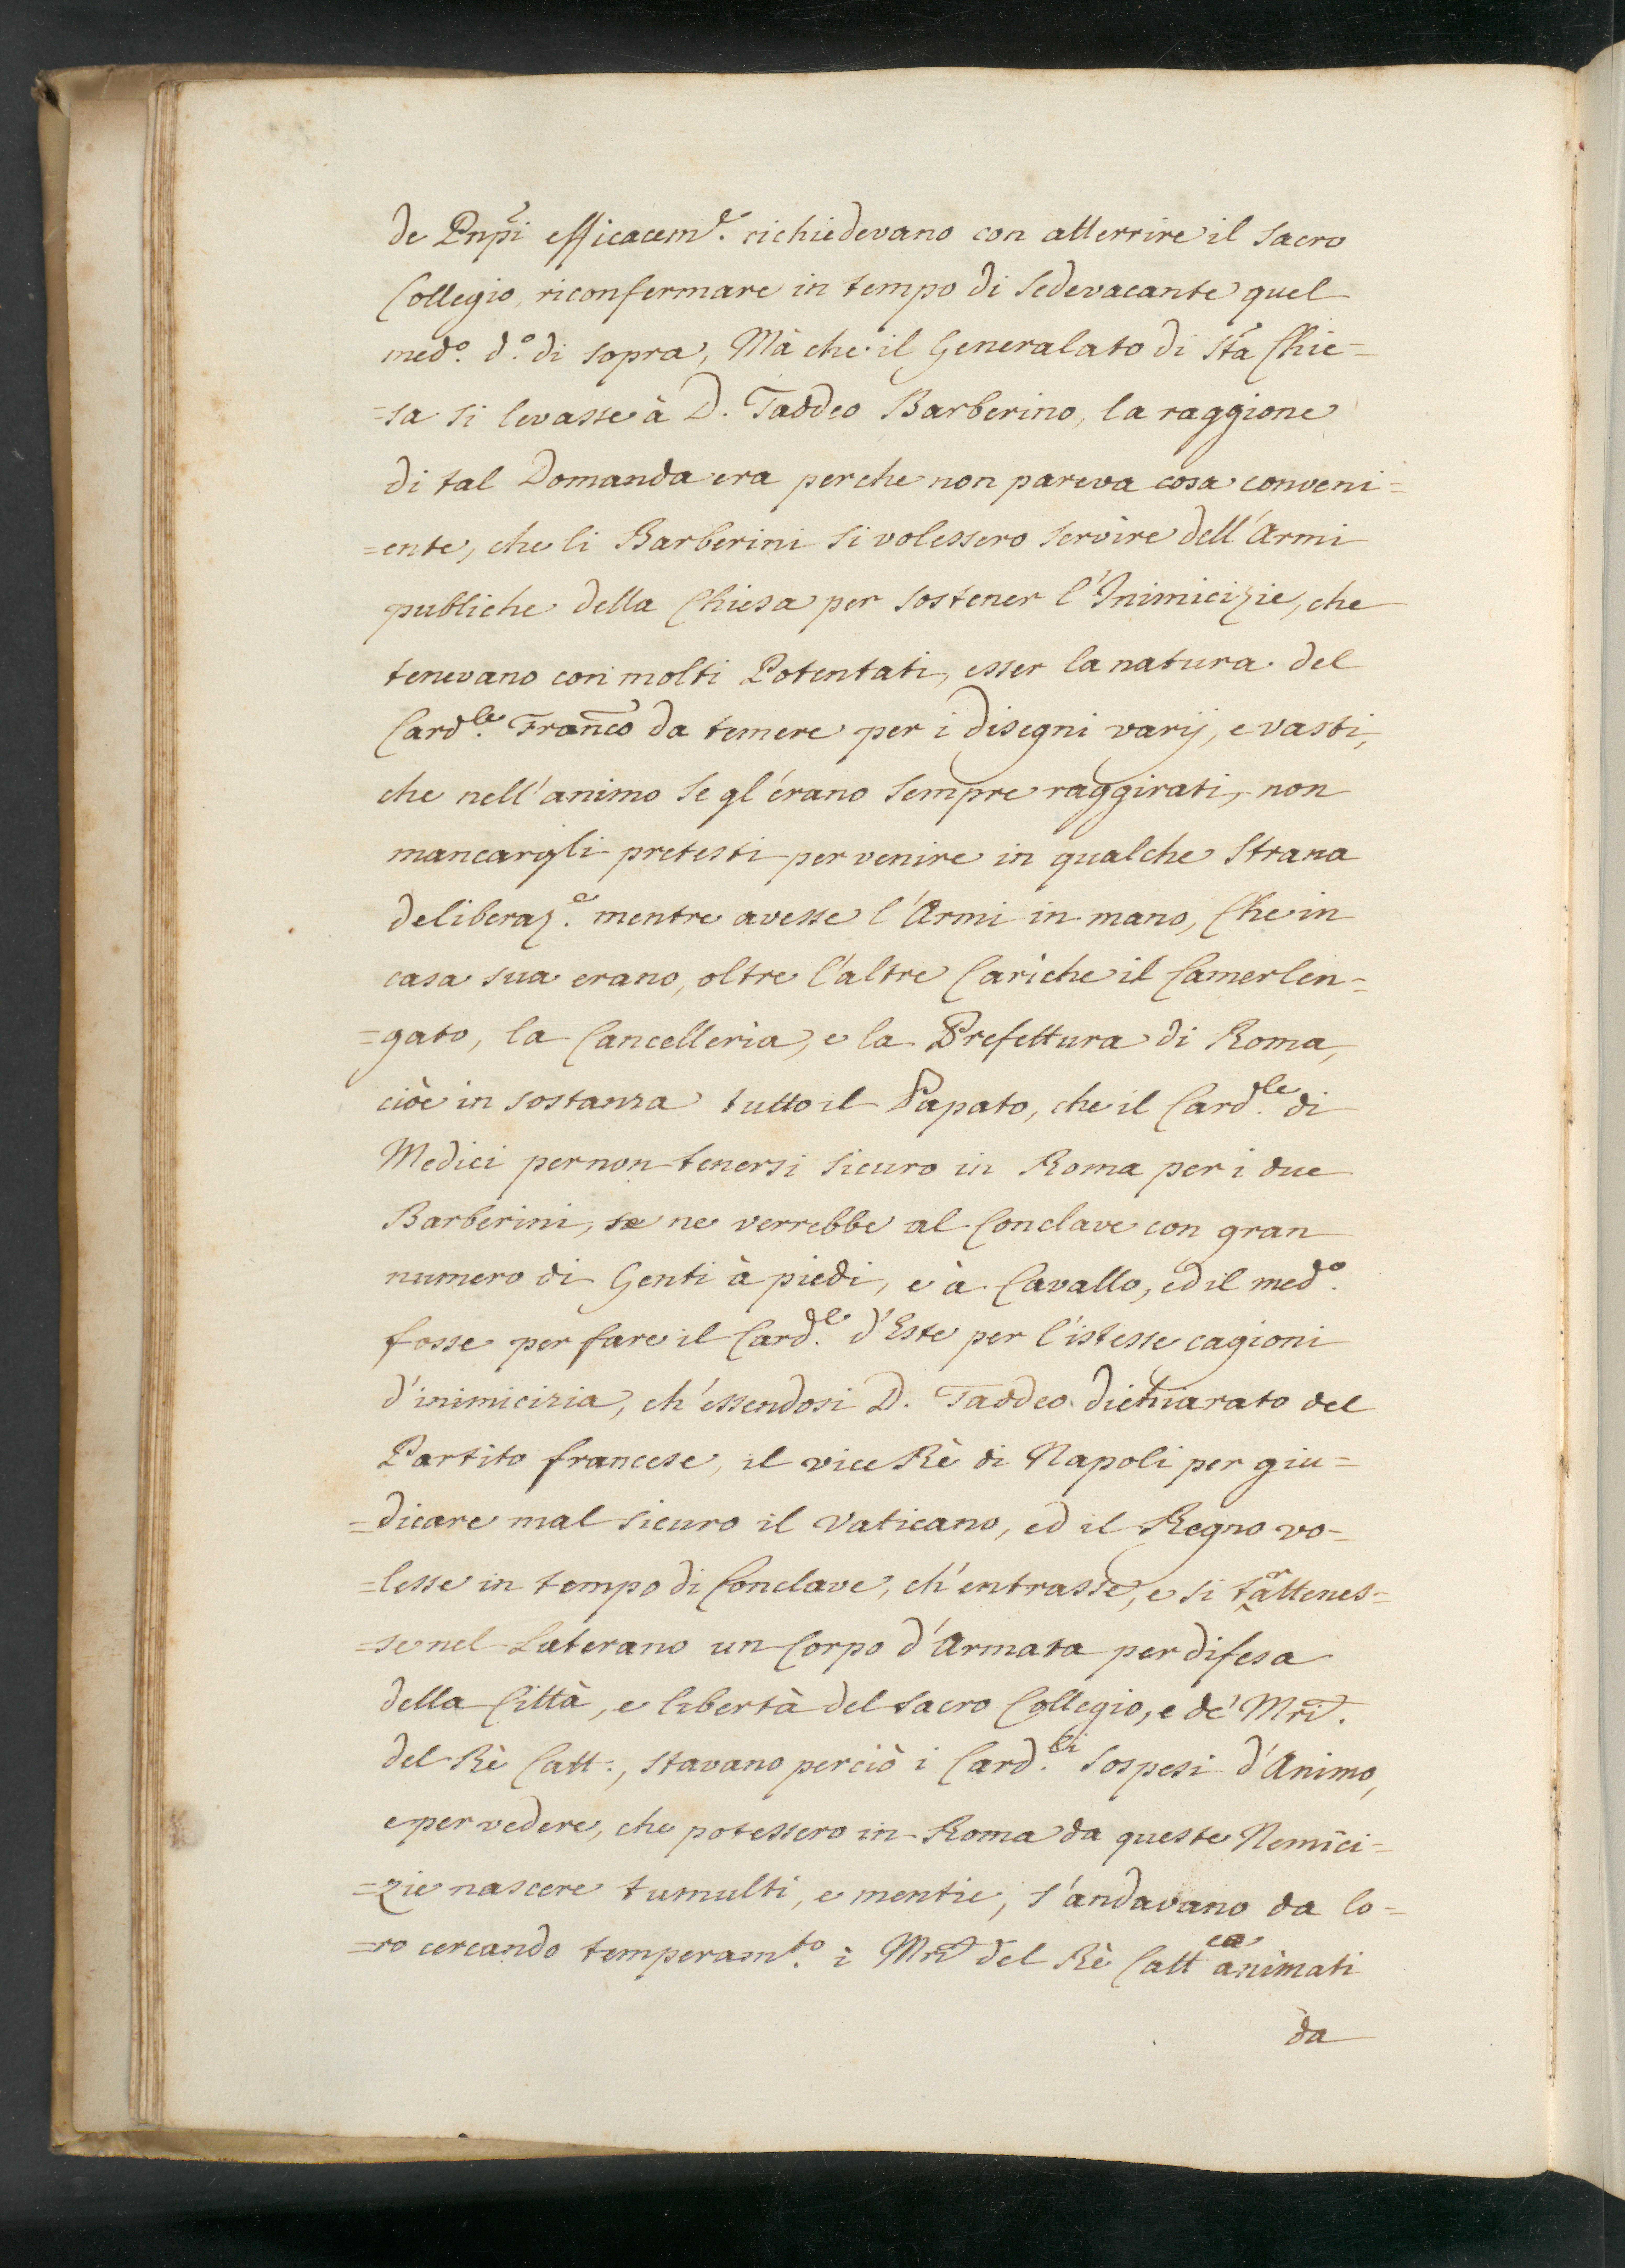 de Pnp̃i efficacem.e richiedevano con atterrire il sacro
Collegio, riconfermare in tempo di sedevacante quel
med.o d.o di sopra, Mà che il Generalato di Sta Chie=
=sa si levasse à D. Taddeo Barberino, la raggione
di tal Domanda era perche non pareva cosa conveni=
=ente, che li Barberini si volessero servire dell'Armi
publiche della Chiesa per sostener l'Inimicizie, che
tenevano con molti Potentati, esser la natura del
Card.le Fran̄co da temere per i disegni varij, e vasti,
che nell'animo se gl'érano sempre raggirati, non
mancargli pretesti per venire in qualche strana
deliberaz.e mentre avesse l'Armi in mano, Che in
casa sua erano, oltre l'altre Cariche il Camerlen=
=gato, la Cancelleria, e la Prefettura di Roma,
cioè in sostanza tutto il Papato, che il Card.le di
Medici per non tenersi sicuro in Roma per i due
Barberini, se ne verrebbe al Conclave con gran
numero di Genti à piedi, e à Cavallo, ed il med.o
fosse per fare il Card.le d'Este per l'istesse cagioni
d'inimicizia, ch'essendosi D. Taddeo dichiarato del
Partito francese, il vice Rè di Napoli per giu=
=dicare mal sicuro il Vaticano, ed il Regno vo=
=lesse in tempo di Conclave, ch'entrasse, e si trattenes=
=se nel Laterano un Corpo d'Armata per difesa
della Città, e libertà del Sacro Collegio, e de' Mrĩ.
del Rè Catt:, stavano perciò i Card.li sospesi d'Animo,
e per vedere, che potessero in Roma da queste Nemici=
=zie nascere tumulti, e mentie, s'andavano da lo=
=ro cercando temperam.to i Mrĩ del Rè Catt.co animati
da